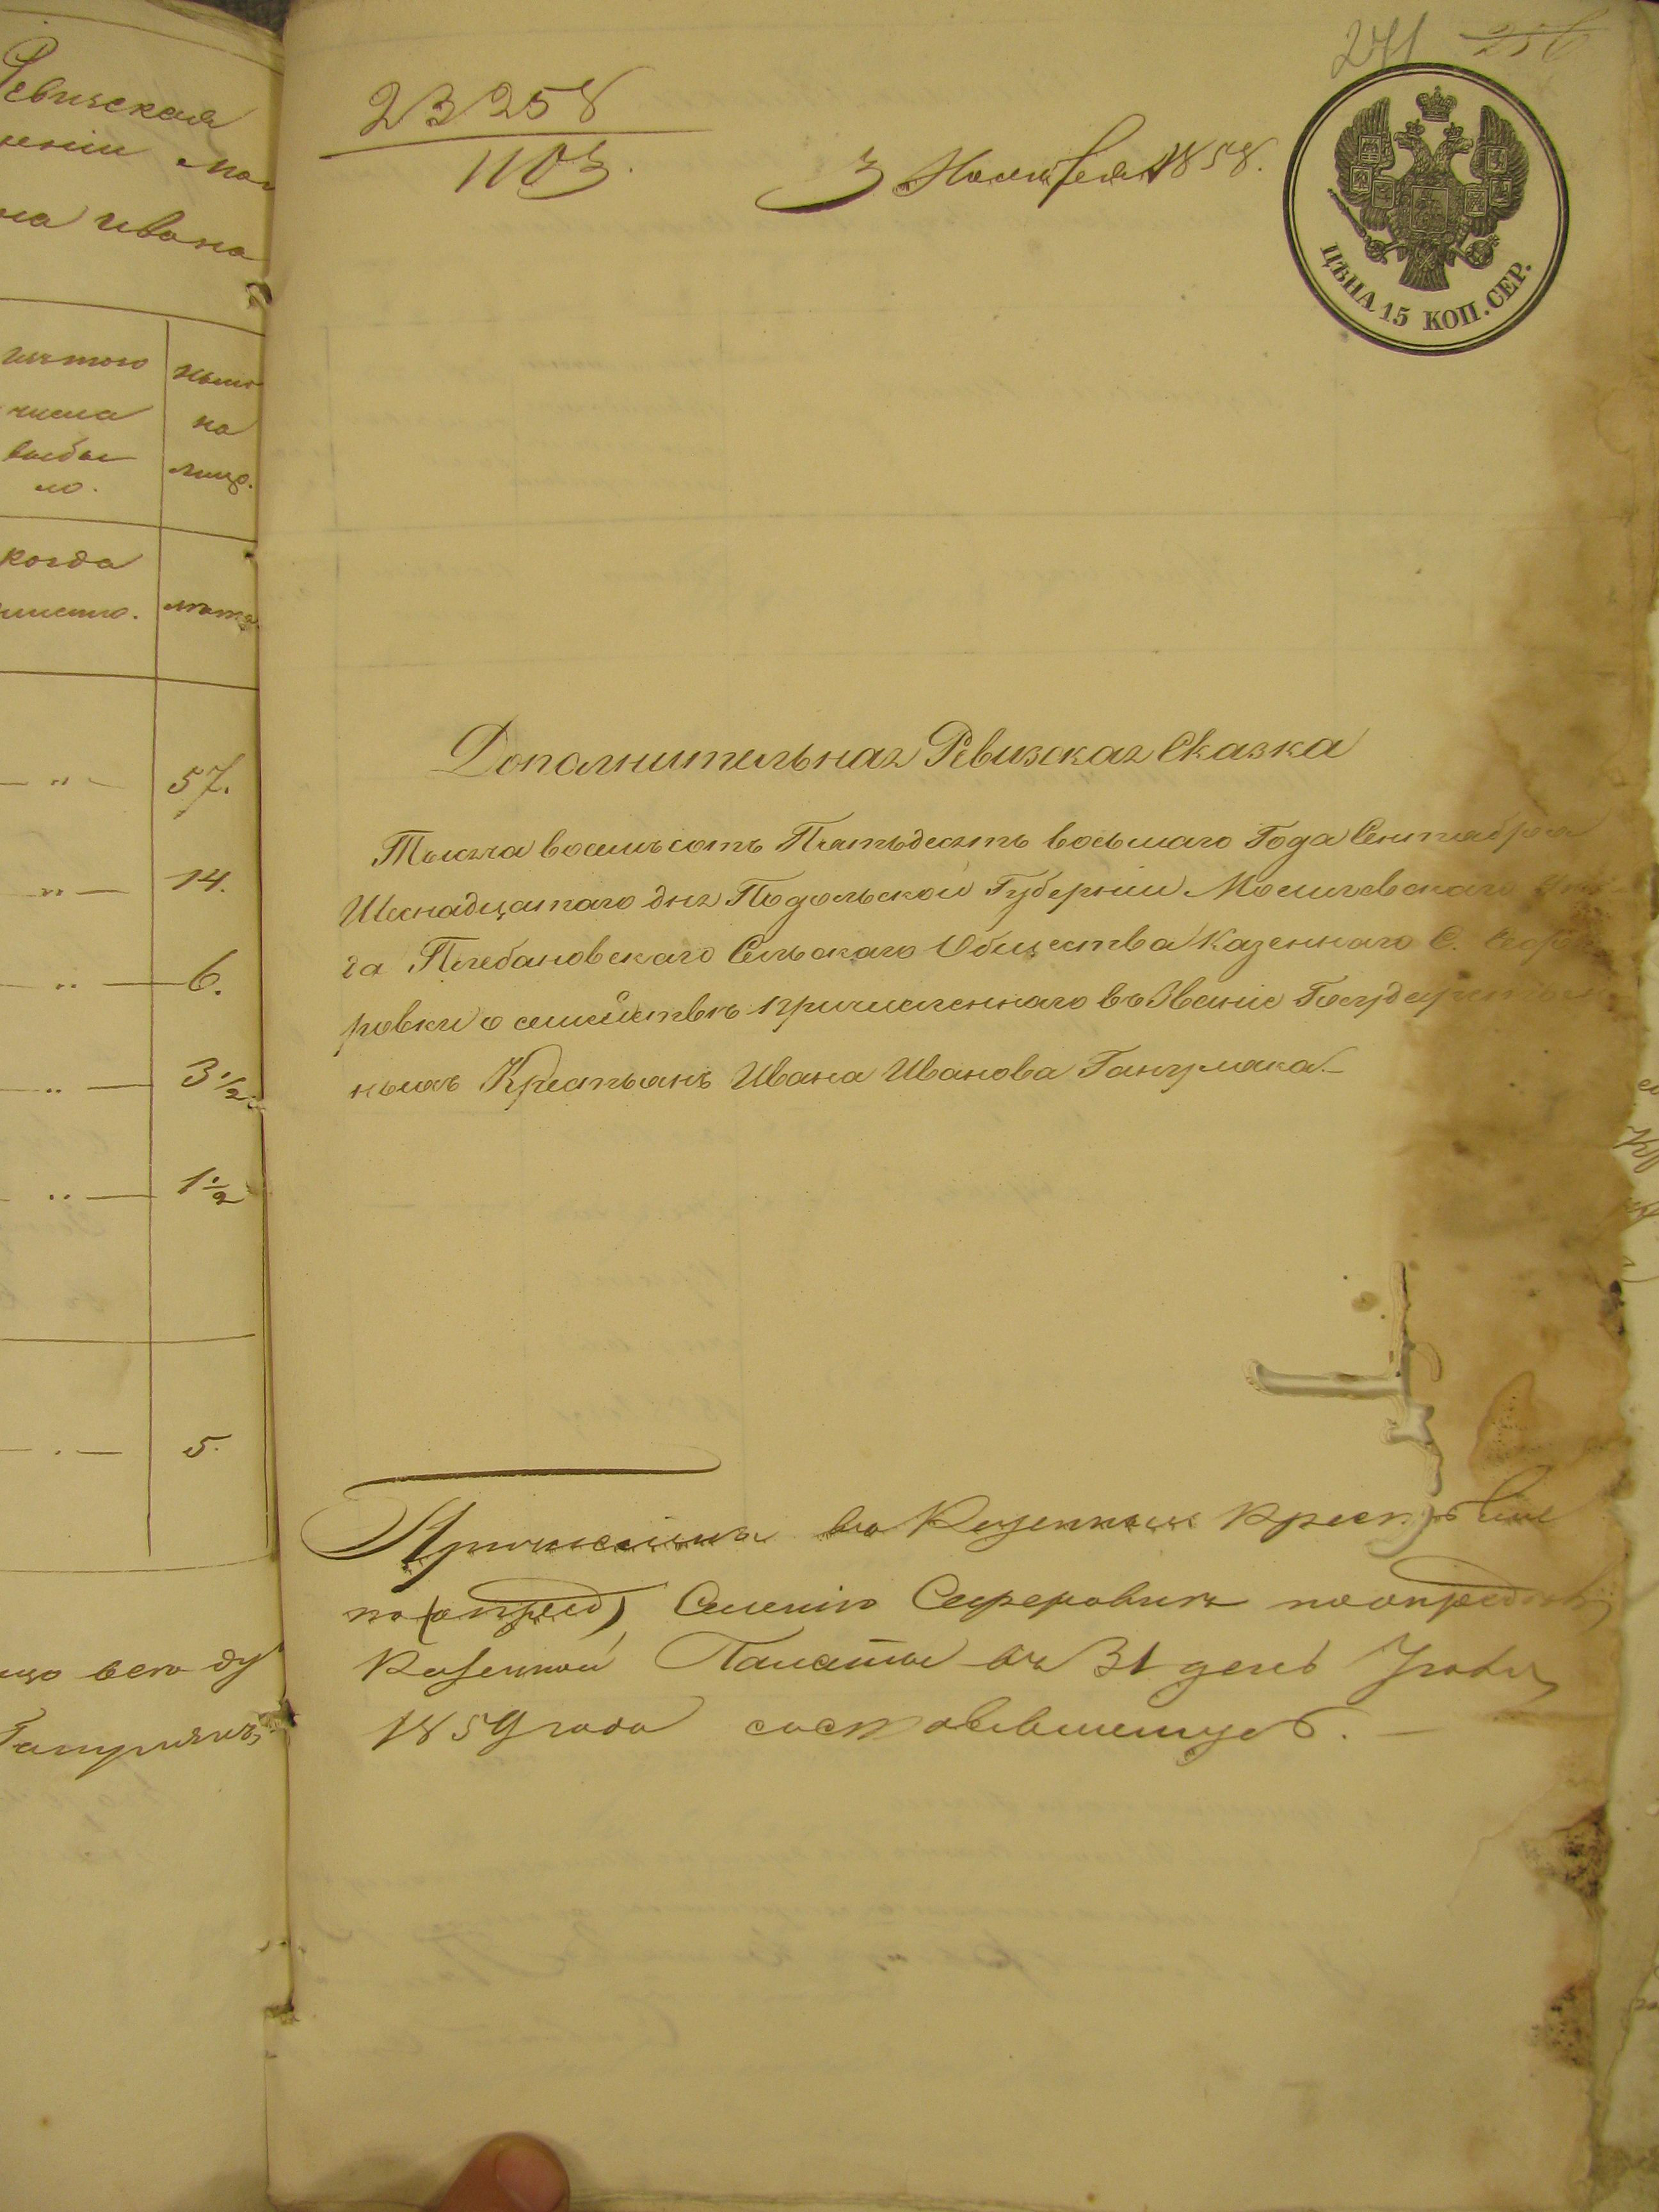 Ревизская
на Ивана
изъ того
числа
выбы
ло.
ныне
на
лицо.
когда
лета
57.
14.
6.
3 1/2
1 1/2
5.
всего ду
271 256
23258
1103.
3 Ноября 1858.
ЦѢНА 15 КОП. СЕР.
Дополнительная Ревизская Сказка
Тысяча восемьсотъ Пятьдесятъ восьмаго Года Сентября
Шеснадцатаго дня Подольской Губерніи Могилевскаго Уѣз
да Плебановскаго Сельскаго Общества Казеннаго С. Сефе
ровки о семействѣ причисленнаго въ Званіе Государствен
ныхъ Крестьянъ Ивана Иванова Ганчумака.
Причислены въ Казенные
по (опред) Селенію Сеферовки по опредѣл
Казенной Палаты въ 31 день
1859 года состоявшемуся.